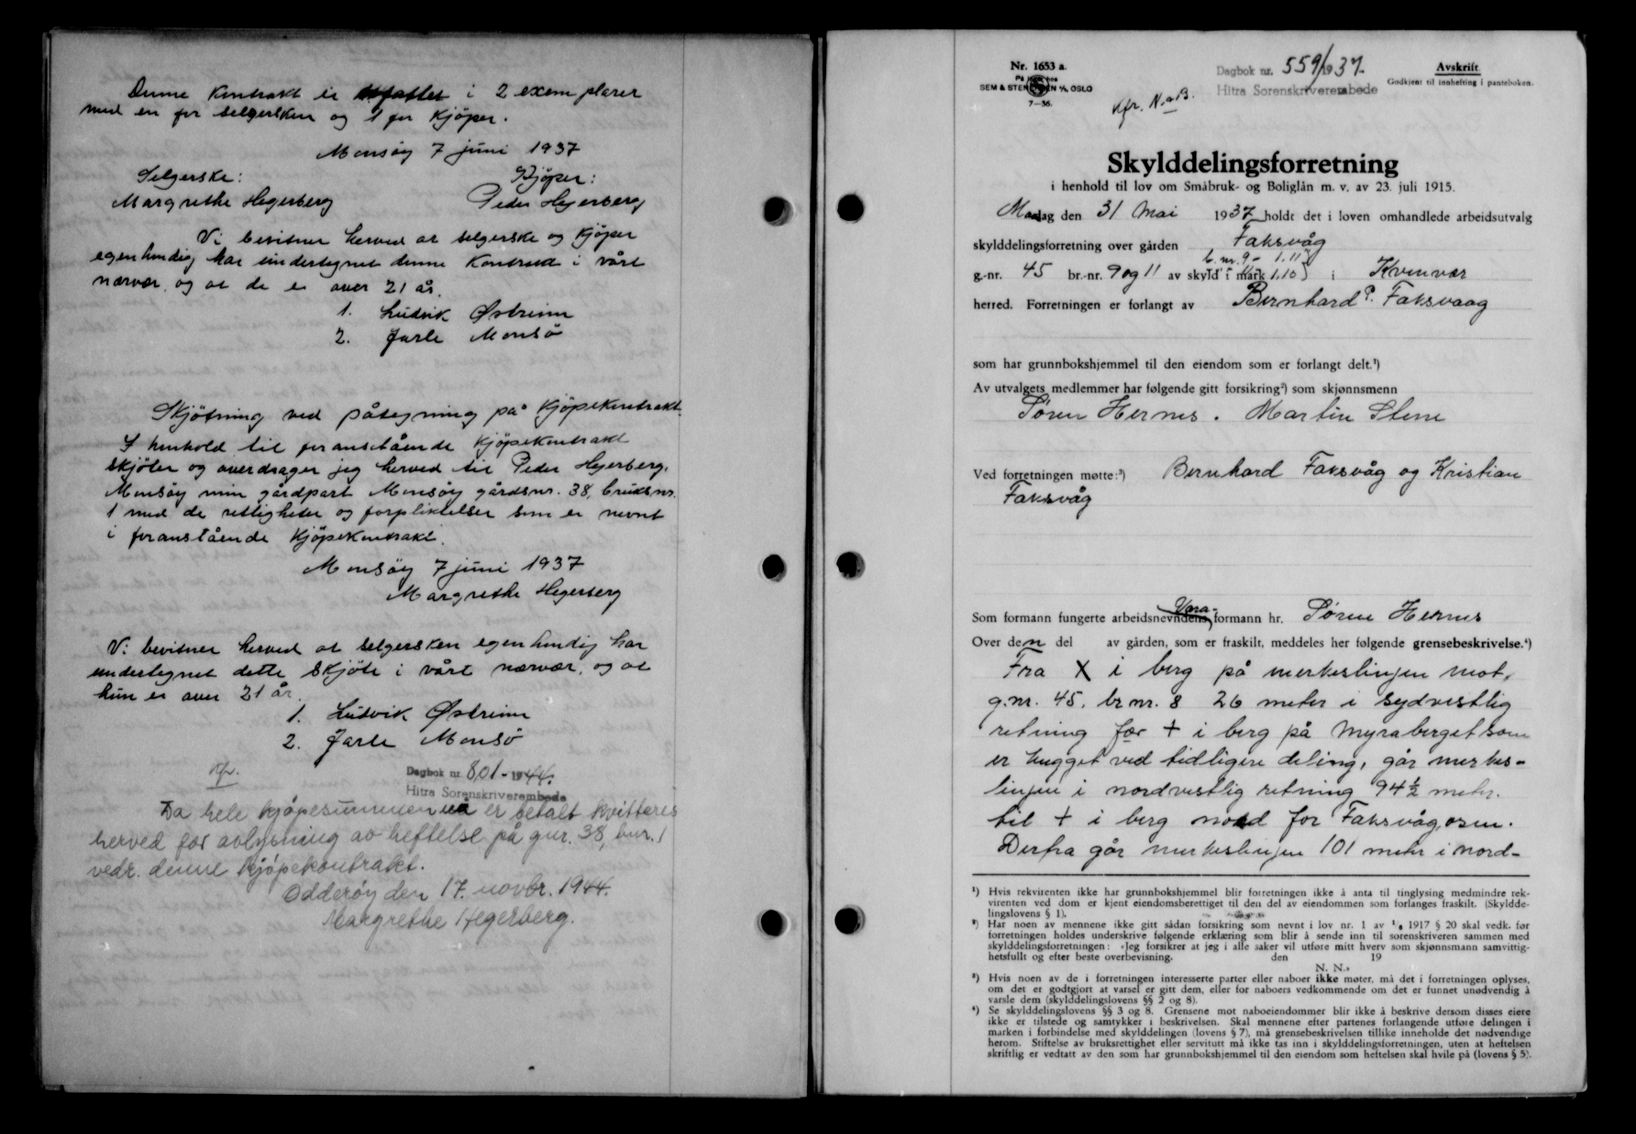 Denne kontrakt er utfattet i 2 exemplarer
med en for selgersken og 1 for kjøper.
Monsøy 7 juni 1937
Selgerske: Kjøper:
Margrethe Hegerberg Peder Hegerberg
Vi bevitner herved at selgerske og kjøper
egenhendig har undertegnet denne kontrakt i vårt
nærvær, og at de er over 21 år.
1. Ludvik Østreim
2. Jarle Monsø
Skjøtning ved påtegning på kjøpekontrakt.
I henhold til foranstående kjøpekontrakt
skjøter og overdrager jeg herved til Peder Hegerberg,
Monsøy min gårdpart Monsøy gårdsnr. 38, bruksnr.
1 med de rettigheter og forpliktelser som er nevnt
i foranstående kjøpekontrakt.
Monsøy 7 juni 1937
Margrethe Hegerberg
Vi bevitner herved at selgersken egenhendig har
undertegnet dette skjøte i vårt nærvær, og at
hun er over 21 år.
1. Ludvik Østreim
2. Jarle Monsø
Kfr.
Dagbok nr. 801 - 1944.
Hitra Sorenskriverembede
Da hele kjøpesummen nå er betalt kvitteres
herved for avlysning av heftelse på gnr. 38, bnr. 1
vedr. denne kjøpekontrakt.
Odderøy den 17. novbr. 1944.
Margrethe Hegerberg.
Nr. 1653 a.
På lager hos
SEM & STENERSEN A/S, OSLO
7—36.
Kfr. N.a B.
Dagbok nr. 559/1937.
Hitra Sorenskriverembede
Avskrift
Godkjent til innhefting i panteboken.
Skylddelingsforretning
i henhold til lov om Småbruk- og Boliglån m. v. av 23. juli 1915.
Mandag den 31 Mai 1937 holdt det i loven omhandlede arbeidsutvalg
skylddelingsforretning over gården Faksvåg
b.nr. 9 - 1.11
g.-nr. 45 br.-nr. 9 og 11 av skyld i mark 1,10 i Kvenvær
herred. Forretningen er forlangt av Bernhard P. Faksvaag
som har grunnbokshjemmel til den eiendom som er forlangt delt.¹)
Av utvalgets medlemmer har følgende gitt forsikring²) som skjønnsmenn
Søren Hernes. Martin Stene
Ved forretningen møtte:³) Bernhard Faksvåg og Kristian
Faksvåg
Vara-
Som formann fungerte arbeidsnevndens formann hr. Søren Hernes
Over den del av gården, som er fraskilt, meddeles her følgende grensebeskrivelse.⁴)
Fra X i berg på merkeslinjen mot,
g.nr. 45, br.nr. 8 26 meter i sydvestlig
retning for + i berg på Myraberget som
er hugget ved tidligere deling, går merkes-
linjen i nordvestlig retning 94½ meter.
til + i berg nord for Faksvågosen.
Derfra går merkeslinjen 101 meter i nord-
¹) Hvis rekvirenten ikke har grunnbokshjemmel blir forretningen ikke å anta til tinglysing medmindre rek-
virenten ved dom er kjent eiendomsberettiget til den del av eiendommen som forlanges fraskilt. (Skyldde-
lingslovens § 1).
²) Har noen av mennene ikke gitt sådan forsikring som nevnt i lov nr. 1 av ¹/₆ 1917 § 20 skal vedk. før
forretningen holdes underskrive følgende erklæring som blir å sende inn til sorenskriveren sammen med
skylddelingsforretningen: «Jeg forsikrer at jeg i alle saker vil utføre mitt hverv som skjønnsmann samvittig-
hetsfullt og efter beste overbevisning. den 19
N. N.»
³) Hvis noen av de i forretningen interesserte parter eller naboer ikke møter, må det i forretningen oplyses,
om det er godtgjort at varsel er gitt dem, eller for naboers vedkommende om det er funnet unødvendig å
varsle dem (skylddelingslovens §§ 2 og 8).
⁴) Se skylddelingslovens §§ 3 og 8. Grensene mot naboeiendommer blir ikke å beskrive dersom disses eiere
ikke er tilstede og samtykker i beskrivelsen. Skal mennene efter partenes forlangende utføre delingen i
marken i forbindelse med skylddelingen (lovens § 7), må grensebeskrivelsen tillike inneholde det nødvendige
herom. Stiftelse av bruksrettighet eller servitutt må ikke tas inn i skylddelingsforretningen, uten at heftelsen
skriftlig er vedtatt av den som har grunnbokshjemmel til den eiendom som heftelsen skal hvile på (lovens § 5).